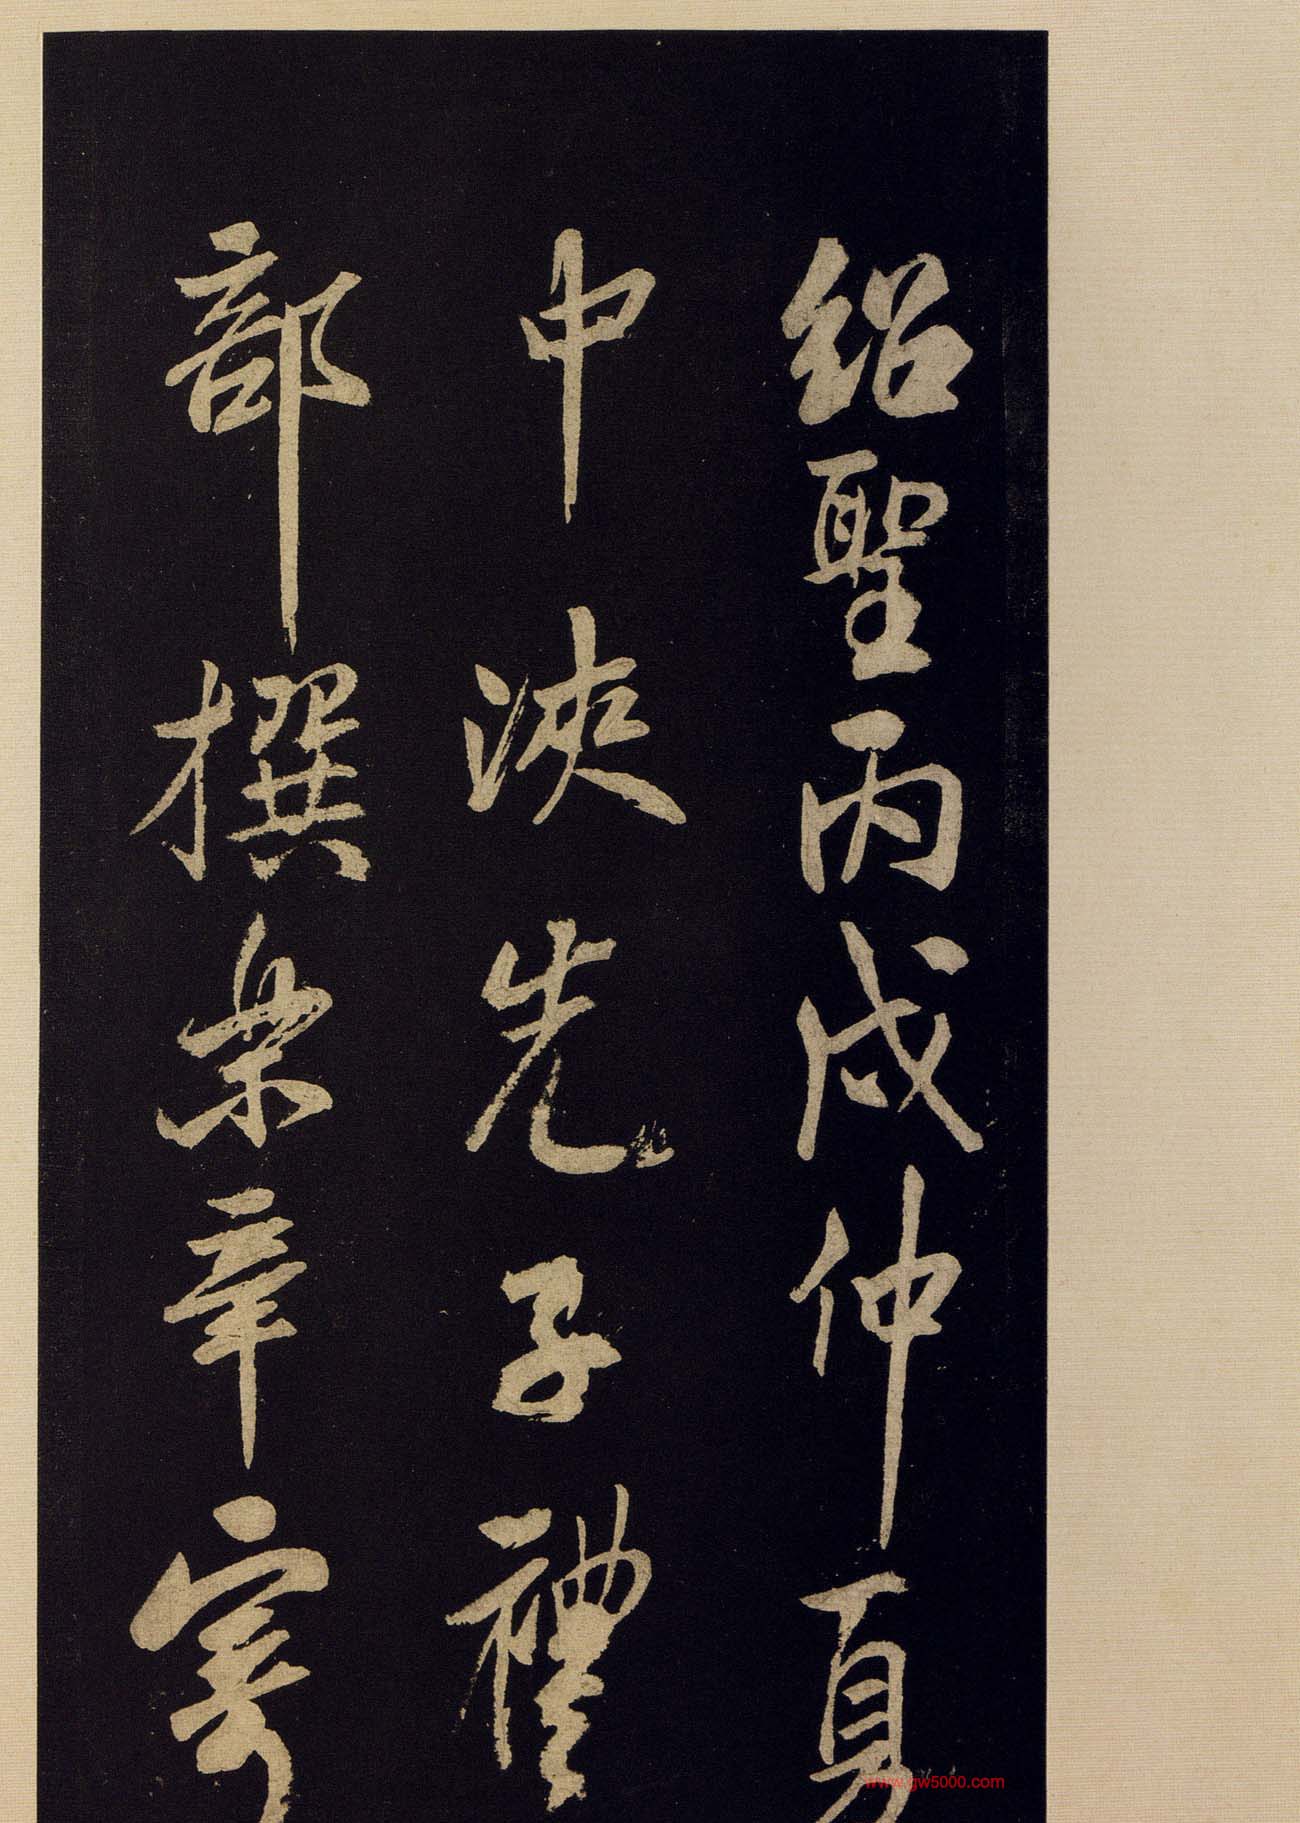 紹聖丙戌仲夏
中浹先子禮
部撰樂章寄
www.gw5000.com